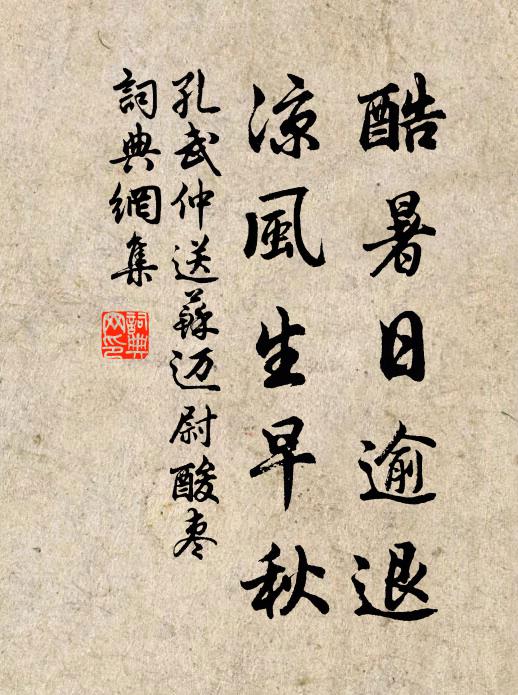 酷暑日逾退
涼風生早秋
孔武仲送蘇迈尉酸枣
詞典網集
詞典
网印